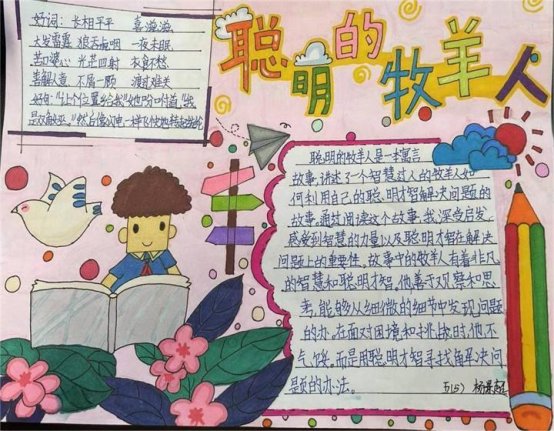 好词：长相平平 喜滋滋
大发雷霆 狼吞虎咽 一夜未眠
苦口婆心 光芒四射 衣食不愁
善解人意 不屑一顾 渡过难关
好句："让个位置给我"他吩咐道"我
聪明的牧羊人
聪明的牧羊人是一本寓言
故事，讲述了一个智慧过人的牧羊人如
何利用自己的聪明才智解决问题的
故事。通过阅读这个故事，我深受启发，
感受到智慧的力量以及聪明才智在解决
问题上的重要性。故事中的牧羊人有着非凡
的智慧和聪明才智，他善于观察和思
考，能够从细微的细节中发现问题
的办。在面对困境和挑战时他不
气馁。而是用聪明才智寻找解决问
题的办法。
五(5) 杨景